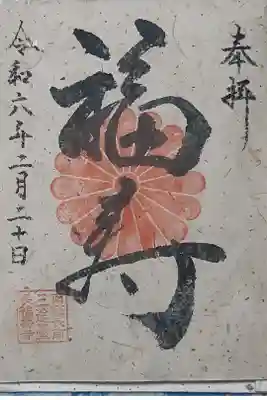 奉拝
福寿
令和六年二月二十日